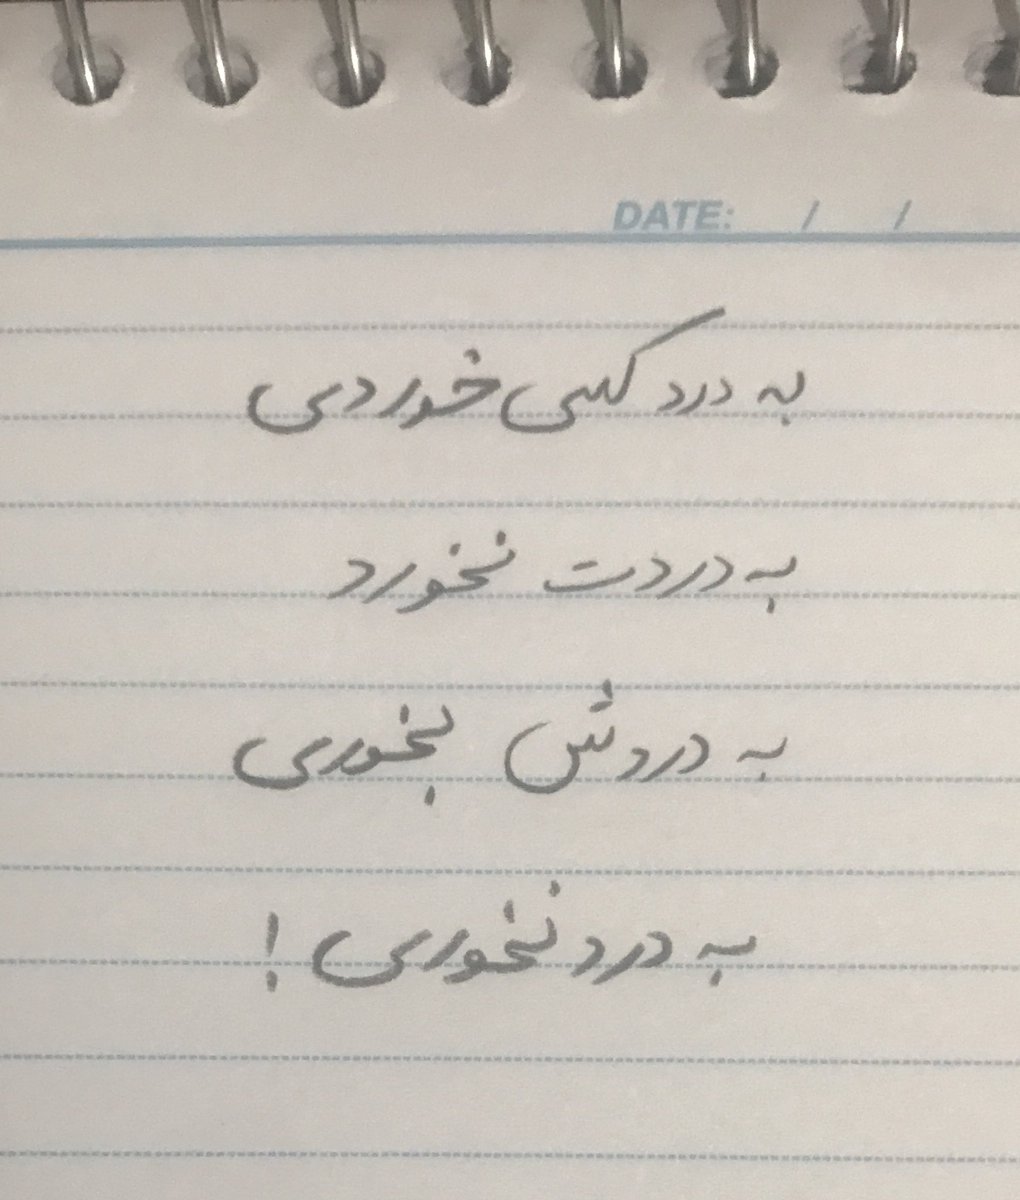 DATE: / /
به درد کسی خوردی
به دردت نخورد
به دردش بخوری
به درد نخوری !